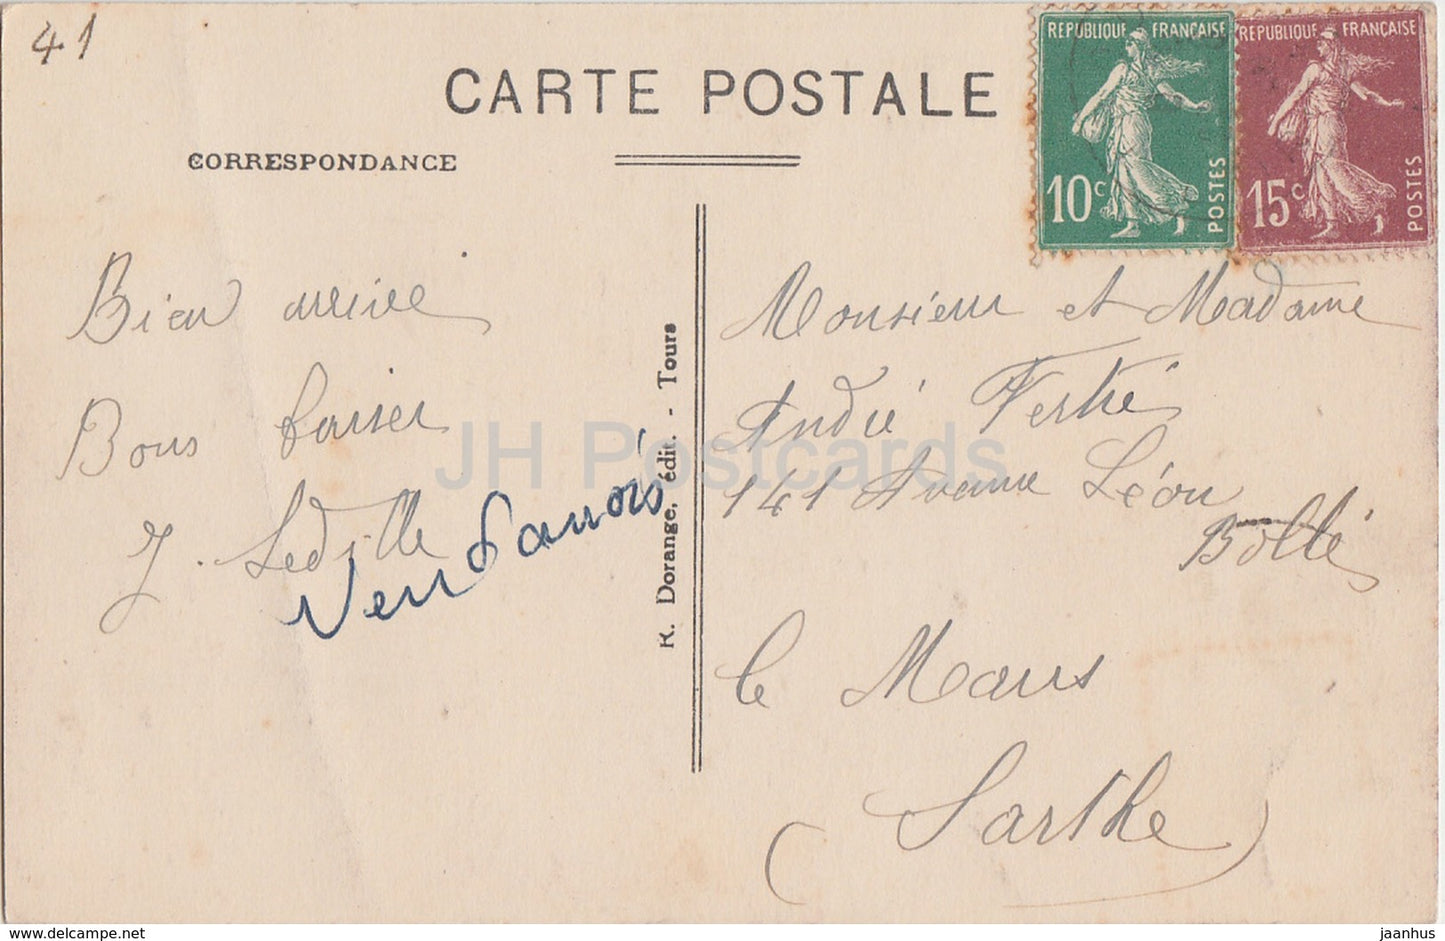 41
CARTE POSTALE
CORRESPONDANCE
REPUBLIQUE FRANÇAISE
10c
POSTES
REPUBLIQUE FRANÇAISE
15c
POSTES
Bien arrivé
Bons baiser
J. Sedille
Vendomois
R. Dorange, édit. - Tours
Monsieur et Madame
André Fertré
141 Avenue Léon
Bollé
le Mans
Sarthe
JH Postcards
www.delcampe.net
jaanhus